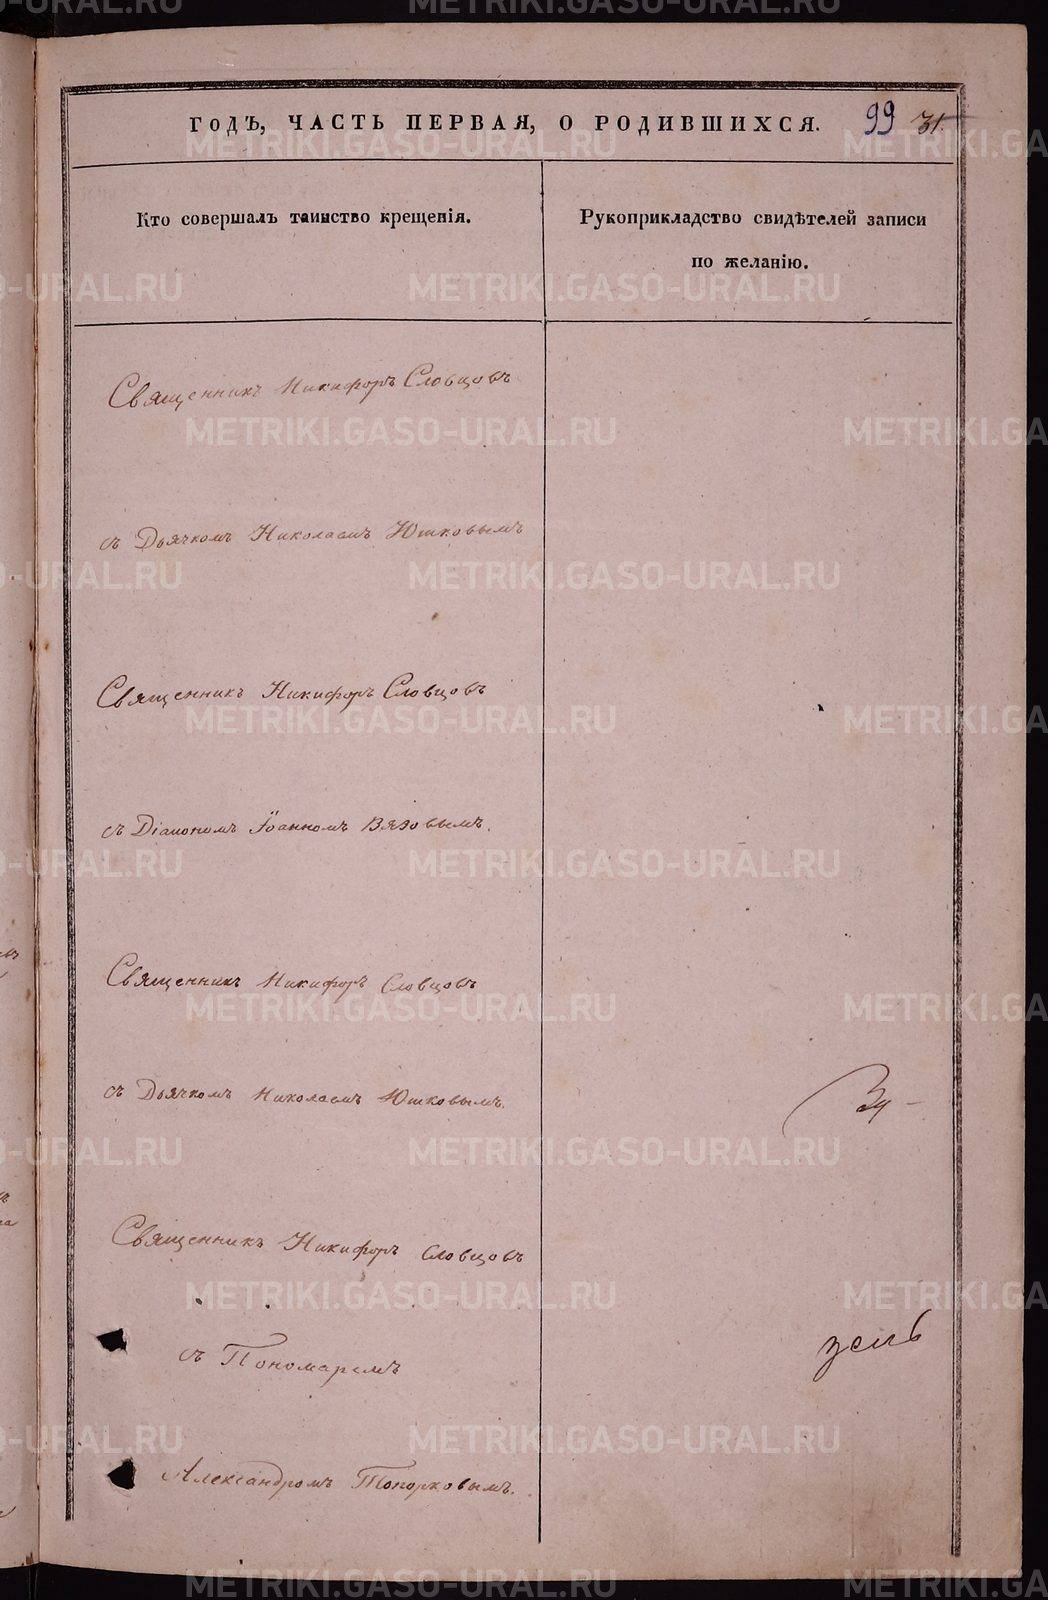 ГОДЪ, ЧАСТЬ ПЕРВАЯ, О РОДИВШИХСЯ. 99 31.
Кто совершалъ таинство крещенія.
Рукоприкладство свидѣтелей записи
по желанію.
Священникъ Никифоръ Словцовъ
съ Дьячкомъ Николаемъ Юшковымъ
Священникъ Никифоръ Словцовъ
съ Діакономъ Іоанномъ Вязовымъ.
Священникъ Никифоръ Словцовъ
съ Дьячкомъ Николаемъ Юшковымъ.
Священникъ Никифоръ Словцовъ
съ Пономаремъ
Александромъ Топорковымъ.
METRIKI.GASO-URAL.RU